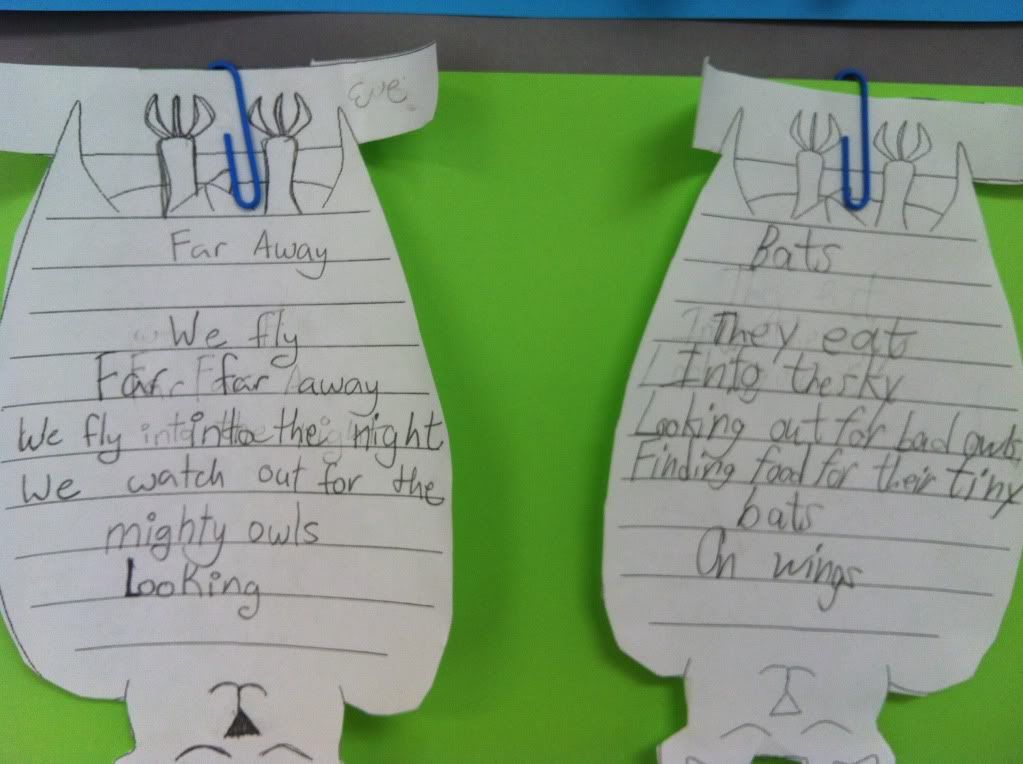 Eve
Far Away
We fly
Far, far away
We fly into the night
We watch out for the
mighty owls
Looking
Bats
They eat
Into the sky
Looking out for bad owls.
Finding food for their tiny
bats
On wings